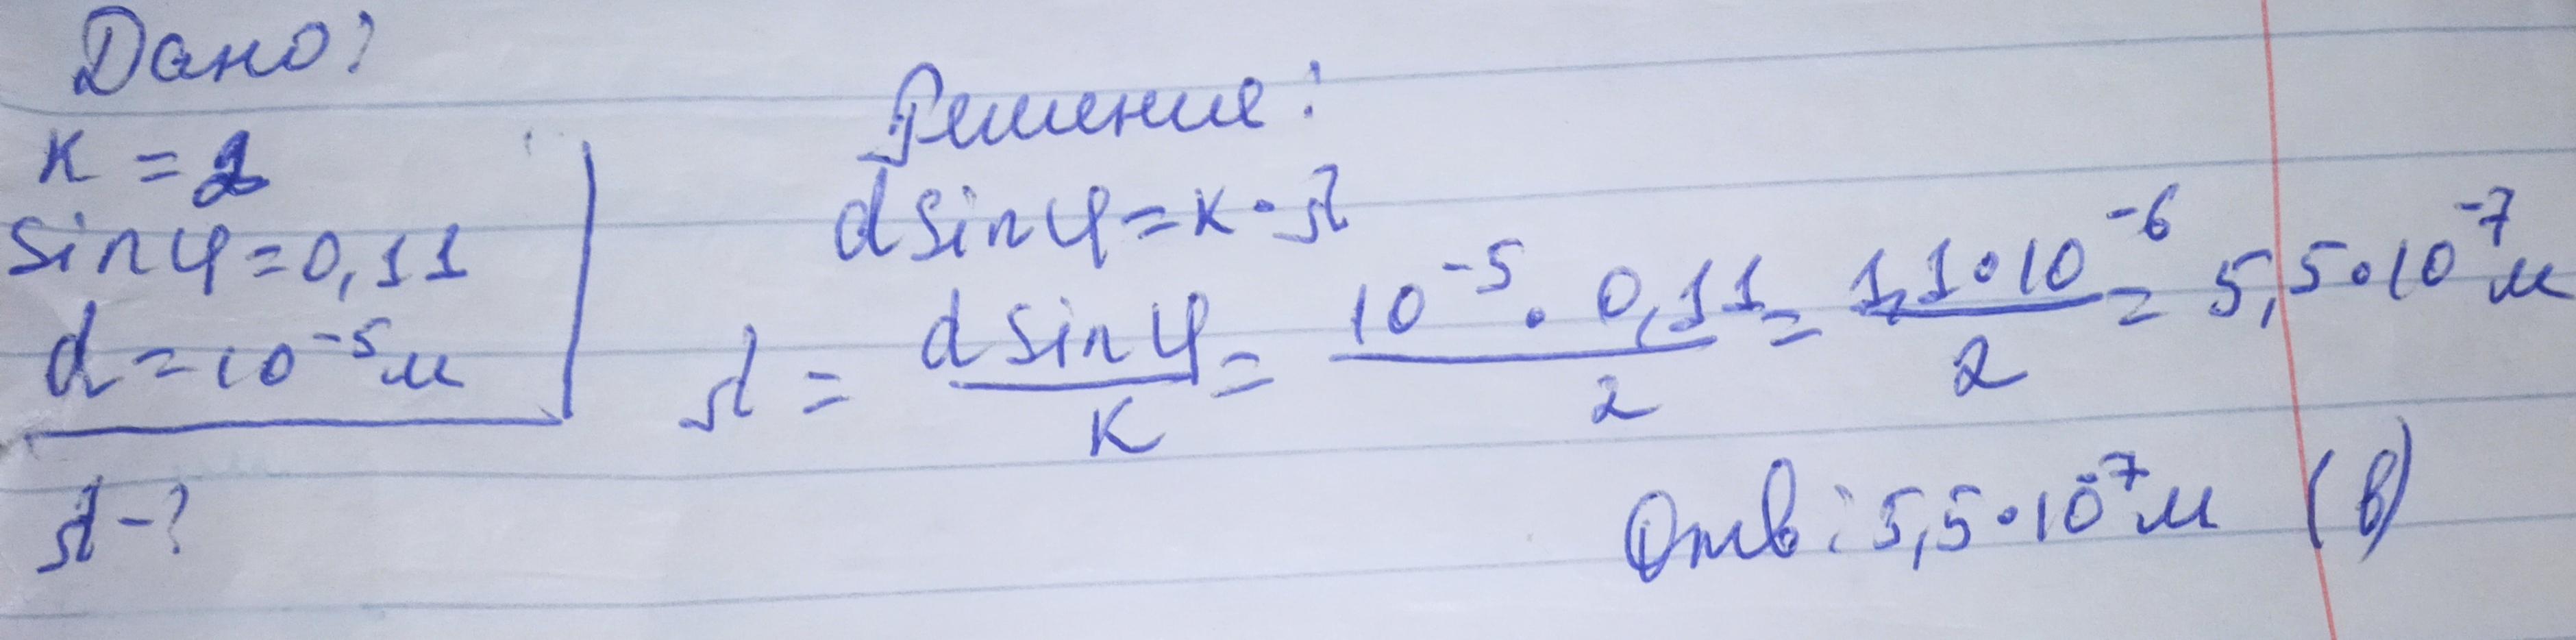 Дано:
к = 2
sinφ=0,11
d=10⁻⁵м
λ-?
Решение:
dsinφ=к·λ
λ = dsinφ/к = 10⁻⁵·0,11/2 = 1,1·10⁻⁶/2 = 5,5·10⁻⁷м
Отв: 5,5·10⁻⁷м (в)